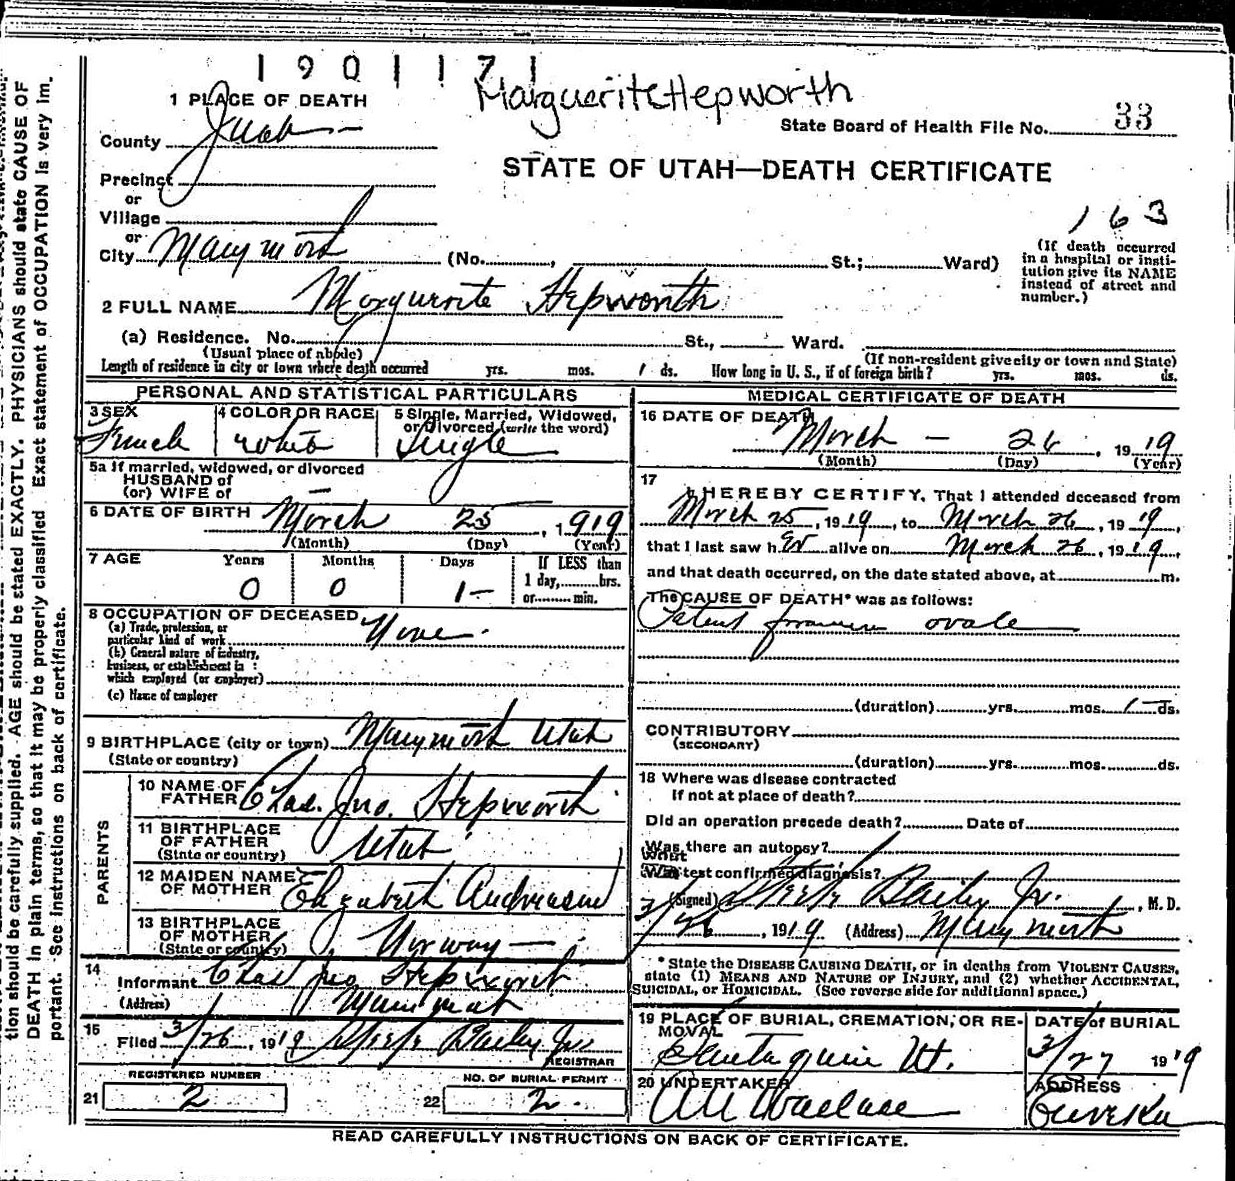 1901171
Marguerite Hepworth
1 PLACE OF DEATH
State Board of Health File No. 33
County Juab
STATE OF UTAH—DEATH CERTIFICATE
Precinct
or
Village
163
or
City Mammoth (No. , St.; Ward)
(If death occurred in a hospital or insti-
tution give its NAME
instead of street and
number.)
2 FULL NAME Marguerite Hepworth
(a) Residence. No. St., Ward.
(Usual place of abode) (If non-resident give city or town and State)
Length of residence in city or town where death occurred yrs. mos. 1 ds. How long in U. S., if of foreign birth? yrs. mos. ds.
PERSONAL AND STATISTICAL PARTICULARS
3 SEX 4 COLOR OR RACE 5 Single, Married, Widowed,
or Divorced (write the word)
Female white Single
5a If married, widowed, or divorced
HUSBAND of
(or) WIFE of —
6 DATE OF BIRTH March 25, 1919
(Month) (Day) (Year)
7 AGE Years Months Days If LESS than
1 day, hrs.
or min.
0 0 1—
8 OCCUPATION OF DECEASED
(a) Trade, profession, or
particular kind of work None
(b) General nature of industry,
business, or establishment in
which employed (or employer)
(c) Name of employer
9 BIRTHPLACE (city or town) Mammoth Utah
(State or country)
PARENTS
10 NAME OF
FATHER Chas. Jno. Hepworth
11 BIRTHPLACE
OF FATHER
(State or country) Utah
12 MAIDEN NAME
OF MOTHER Elizabeth Andreasen
13 BIRTHPLACE
OF MOTHER
(State or country) Norway —
14
Informant Chas Jno Hepworth
(Address) Mammoth
15
Filed 3/26, 1919 Steele Bailey Jr
REGISTRAR
REGISTERED NUMBER NO. OF BURIAL PERMIT
21 2 22 2.
MEDICAL CERTIFICATE OF DEATH
16 DATE OF DEATH
March — 26, 1919
(Month) (Day) (Year)
17
I HEREBY CERTIFY, That I attended deceased from
March 25, 1919, to March 26, 1919,
that I last saw h er alive on March 26, 1919,
and that death occurred, on the date stated above, at m.
The CAUSE OF DEATH* was as follows:
Patent foramen ovale
(duration) yrs. mos. 1— ds.
CONTRIBUTORY
(SECONDARY)
(duration) yrs. mos. ds.
18 Where was disease contracted
If not at place of death?
Did an operation precede death? Date of
Was there an autopsy?
What test confirmed diagnosis?
(Signed) Steele Bailey Jr., M. D.
3/26, 1919 (Address) Mammoth
*State the DISEASE CAUSING DEATH, or in deaths from VIOLENT CAUSES,
state (1) MEANS AND NATURE OF INJURY, and (2) whether ACCIDENTAL,
SUICIDAL, or HOMICIDAL. (See reverse side for additional space.)
19 PLACE OF BURIAL, CREMATION, OR RE-
MOVAL
Santaquin Ut.
DATE of BURIAL
3/27 1919
20 UNDERTAKER
A N Wallace
ADDRESS
Eureka
READ CAREFULLY INSTRUCTIONS ON BACK OF CERTIFICATE.
tion should be carefully supplied. AGE should be stated EXACTLY. PHYSICIANS should state CAUSE OF
DEATH in plain terms, so that it may be properly classified. Exact statement of OCCUPATION is very im-
portant. See instructions on back of certificate.